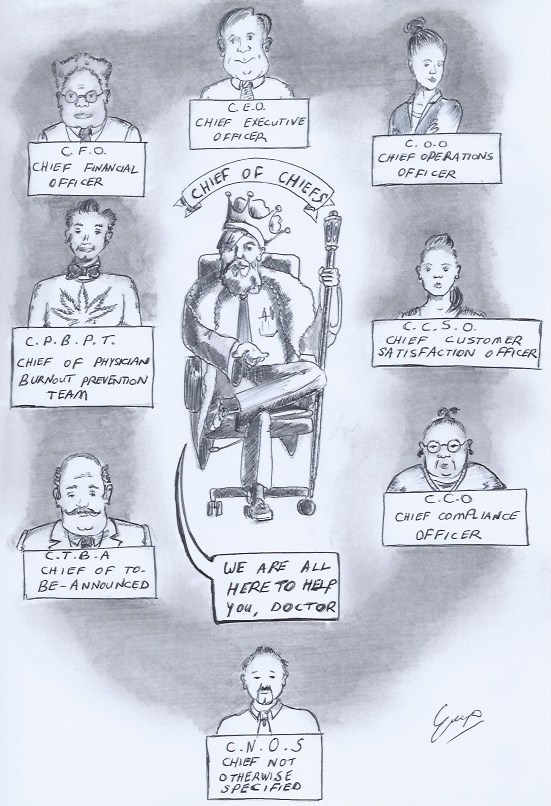 C.E.O.
CHIEF EXECUTIVE
OFFICER
C.F.O.
CHIEF FINANCIAL
OFFICER
C.O.O
CHIEF OPERATIONS
OFFICER
CHIEF OF CHIEFS
C.P.B.P.T.
CHIEF OF PHYSICIAN
BURNOUT PREVENTION
TEAM
C.C.S.O.
CHIEF CUSTOMER
SATISFACTION OFFICER
C.T.B.A
CHIEF OF TO-
BE-ANNOUNCED
C.C.O
CHIEF COMPLIANCE
OFFICER
WE ARE ALL
HERE TO HELP
YOU, DOCTOR
C.N.O.S
CHIEF NOT
OTHERWISE
SPECIFIED